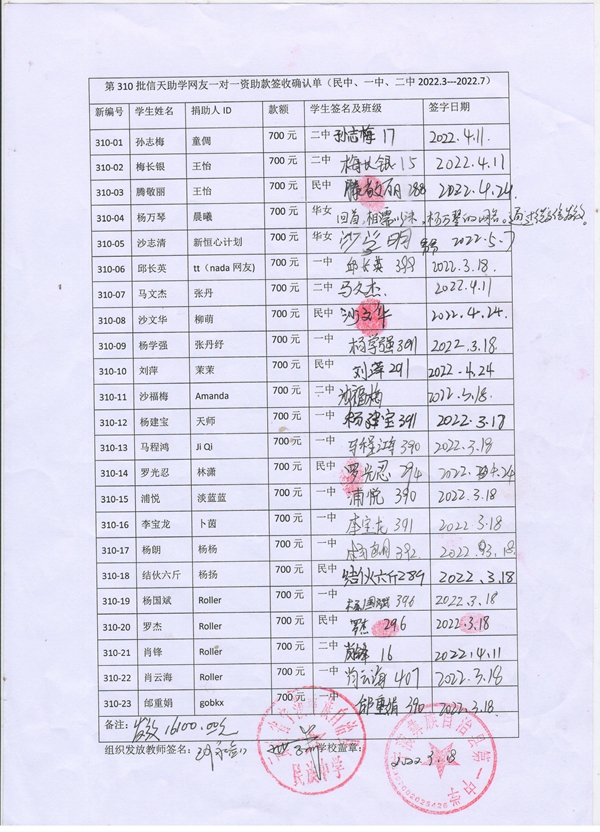 第 310 批信天助学网友一对一资助款签收确认单（民中、一中、二中 2022.3---2022.7）
新编号 学生姓名 捐助人 ID 款额 学生签名及班级 签字日期
310-01 孙志梅 童倜 700 元 二中 孙志梅 17 2022.4.11.
310-02 梅长银 王怡 700 元 二中 梅长银 15 2022.4.11
310-03 腾敬丽 王怡 700 元 民中 腾敬丽 288 2022.4.24.
310-04 杨万琴 晨曦 700 元 华女
310-05 沙志清 新恒心计划 700 元 华女 2022.5.7
310-06 邱长英 tt（nada 网友） 700 元 一中 邱长英 399 2022.3.18.
310-07 马文杰 张丹 700 元 二中 马文杰. 2022.4.11
310-08 沙文华 柳萌 700 元 民中 沙文华 2022.4.24.
310-09 杨学强 张丹纾 700 元 一中 杨学强 391 2022.3.18
310-10 刘萍 茉茉 700 元 民中 刘萍 291 2022.4.24
310-11 沙福梅 Amanda 700 元 二中 沙福梅
310-12 杨建宝 天师 700 元 一中 杨建宝 391 2022.3.17
310-13 马程鸿 Ji Qi 700 元 一中 马程鸿 390 2022.3.18
310-14 罗光忍 林潇 700 元 民中 罗光忍 294
310-15 浦悦 淡蓝蓝 700 元 一中 浦悦 390 2022.3.18
310-16 李宝龙 卜茵 700 元 一中 李宝龙 391 2022.3.18
310-17 杨朗 杨杨 700 元 一中 杨朗 392
310-18 结伙六斤 杨扬 700 元 民中 结伙六斤 289 2022.3.18
310-19 杨国斌 Roller 700 元 一中 杨国斌 396 2022.3.18
310-20 罗杰 Roller 700 元 民中 罗杰 296 2022.3.18
310-21 肖锋 Roller 700 元 二中 16 2022.4.11
310-22 肖云海 Roller 700 元 一中 肖云海 407 2022.3.18
310-23 邰重娟 gobkx 700 元 一中 邰重娟 390 2022.3.18.
备注： 发放 16100.00元
组织发放教师签名： 学校盖章： 2022.3.18
民族中学
族自治县第一中学